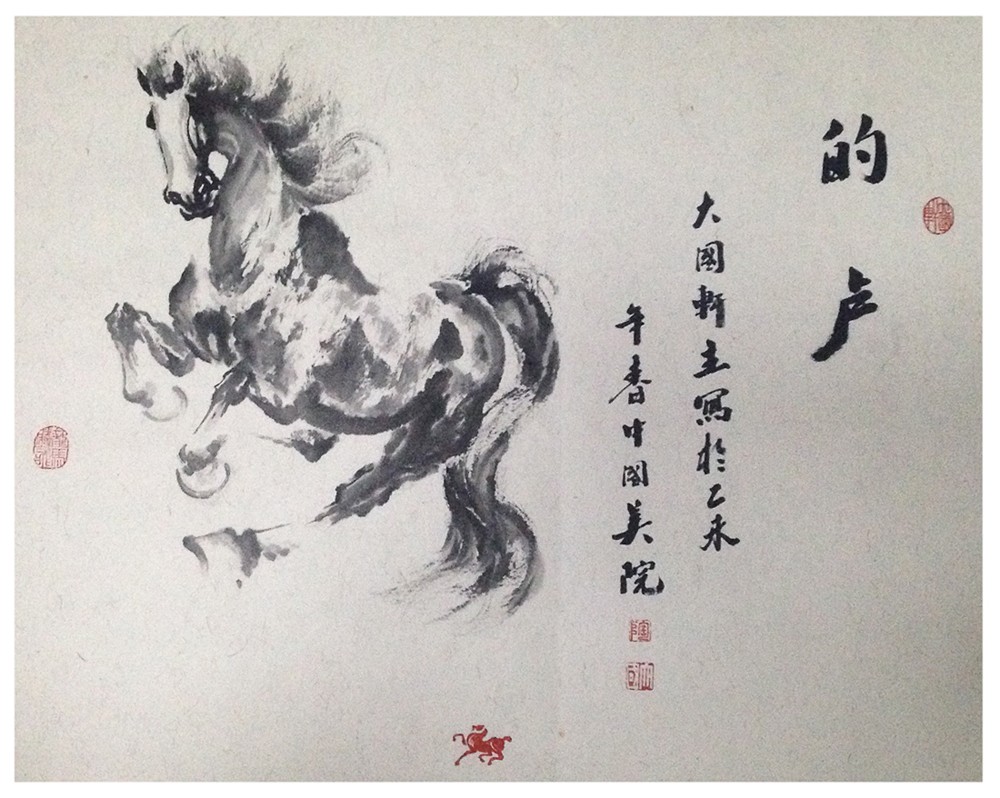 的卢
大國軒主寫於乙未
年春中國美院